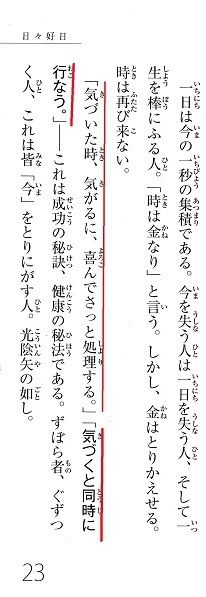 一日は今の一秒の集積である。今を失う人は一日を失う人、そして一
生を棒にふる人。「時は金なり」と言う。しかし、金はとりかえせる。
時は再び来ない。
「気づいた時、気がるに、喜んでさっと処理する。」「気づくと同時に
行なう。」――これは成功の秘訣、健康の秘法である。ずぼら者、ぐずつ
く人、これは皆「今」をとりにがす人。光陰矢の如し。
日々好日
23